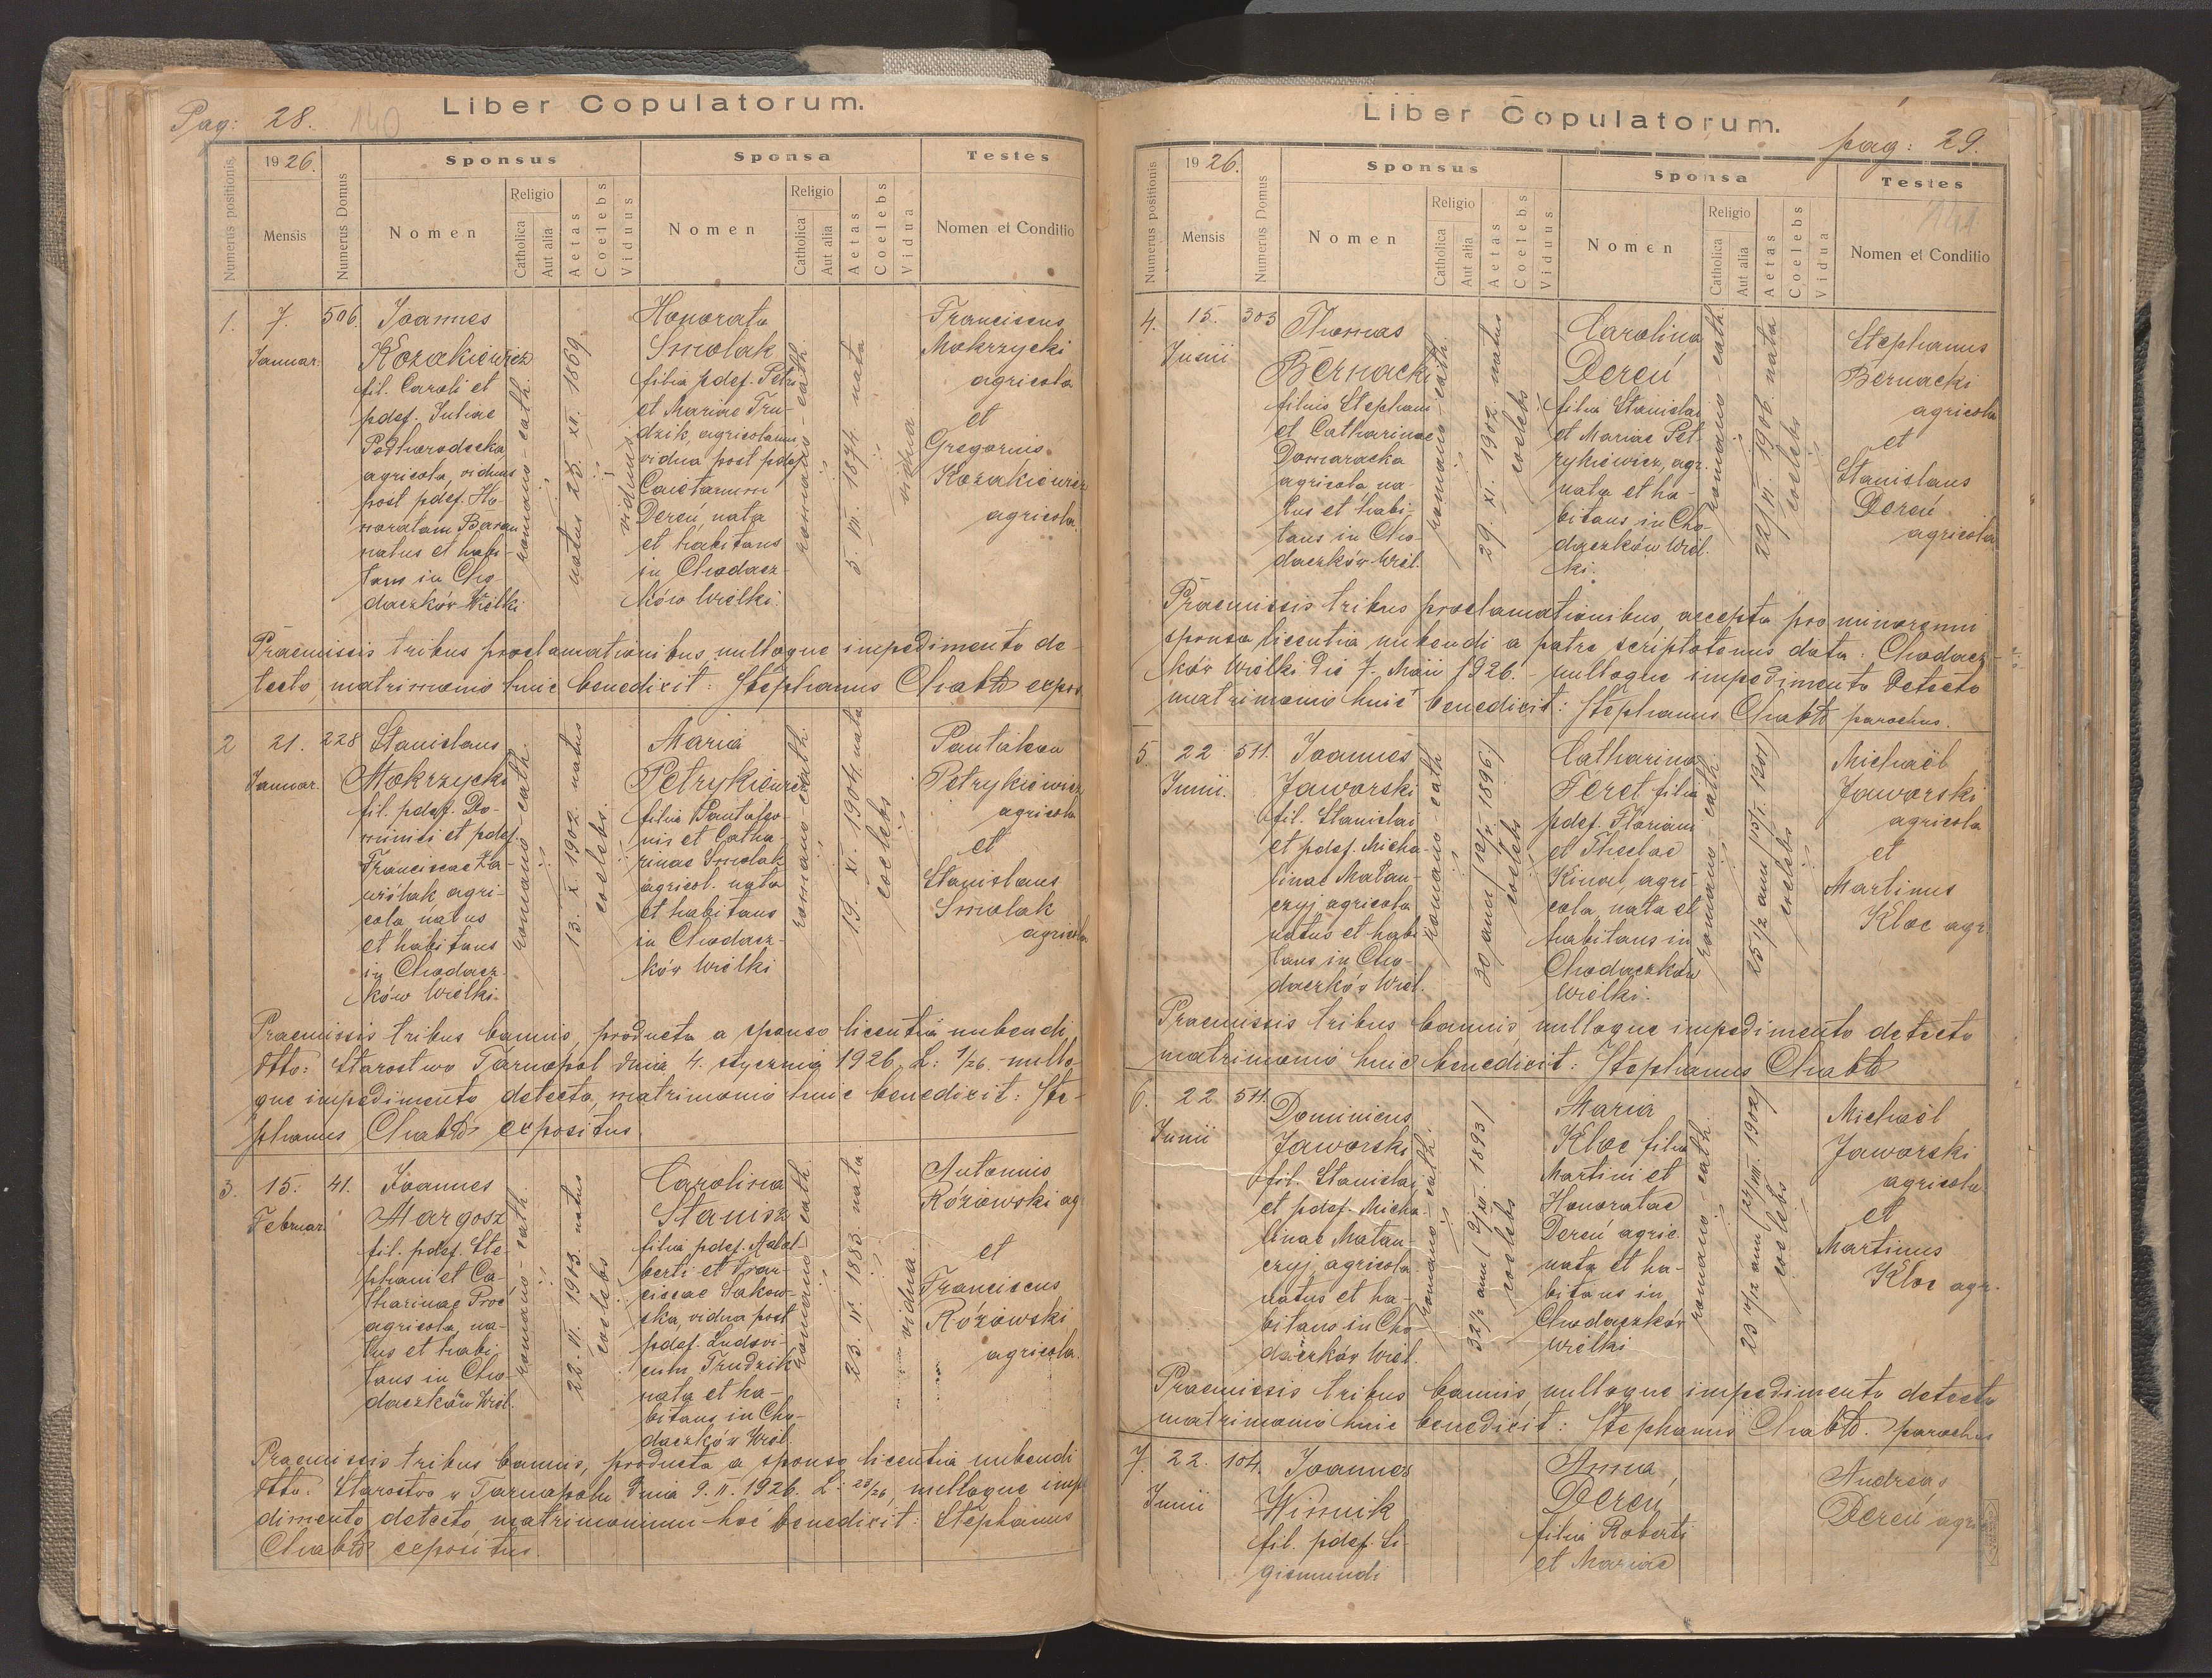 Pag: 28. 140
Liber Copulatorum.
Numerus positionis
1926.
Mensis
Numerus Domus
Sponsus
Nomen
Religio
Catholica
Aut alia
Aetas
Coelebs
Viduus
Sponsa
Nomen
Religio
Catholica
Aut alia
Aetas
Coelebs
Vidua
Testes
Nomen et Conditio
1.
7.
Januar.
506.
Joannes
Kozakiewicz
fil. Caroli et
pdef. Juliae
Podhorodecka
agricola, viduus
post pdef. Ho-
noratam Baran
natus et habi-
tans in Cho-
daczków Wielki
romano-cath.
natus 25. XI. 1869.
viduus
Honorata
Smolak
filia pdef. Petri
et Mariae Tru-
dzik, agricolarum
vidua post pdef.
Caietanum
Dereń, nata
et habitans
in Chodacz-
ków Wielki.
romano-cath.
5. VII. 1874. nata
vidua
Franciscus
Mokrzycki
agricola
et
Gregorius
Kozakiewicz
agricola.
Praemissis tribus proclamationibus nulloque impedimento de-
tecto, matrimonio huic benedixit: Stephanus Chabło expos.
2
21.
Januar.
228
Stanislaus
Mokrzycki
fil. pdef. Do-
minici et pdef.
Franciscae
agri-
cola natus
et habitans
in Chodacz-
ków Wielki.
romano-cath.
13. X. 1902. natus
coelebs.
Maria
Petrykiewicz
filia Pantaleo-
nis et Catha-
rinae Smolak
agricol. nata
et habitans
in Chodacz-
ków Wielki
romano-cath.
19. XI. 1904. nata
coelebs
Pantaleon
Petrykiewicz
agricola
et
Stanislaus
Smolak
agricola
Praemissis tribus bannis, producta a sponso licentia nubendi,
dtto: Starostwo Tarnopol dnia 4. stycznia 1926, L: 1/26. - nullo-
que impedimento detecto, matrimonio huic benedixit: Ste-
phanus Chabło expositus.
3.
15.
Februar.
41.
Joannes
Margosz
fil. pdef. Ste-
phani et Ca-
tharinae Proć
agricola, na-
tus et habi-
tans in Cho-
daczków Wiel.
romano-cath.
22. III. 1903. natus
coelebs
Carolina
Stanisz
filia pdef. Adal-
berti et Fran-
ciscae Sakow-
ska, vidua post
pdef. Ludovi-
cum Trudzik
nata et ha-
bitans in Cho-
daczków Wiel.
romano-cath.
23. II. 1883. nata
vidua
Antonius
Różowski ag.
et
Franciscus
Różowski
agricola.
Praemissis tribus bannis, producta a sponso licentia nubendi
dtto. Starostwo w Tarnopolu dnia 9. II. 1926. L: 23/26, nulloque impe
dimento detecto matrimonium hoc benedixit: Stephanus
Chabło expositus.
Liber Copulatorum.
pag: 29.
141
Numerus positionis
1926.
Mensis
Numerus Domus
Sponsus
Nomen
Religio
Catholica
Aut alia
Aetas
Coelebs
Viduus
Sponsa
Nomen
Religio
Catholica
Aut alia
Aetas
Coelebs
Vidua
Testes
Nomen et Conditio
4.
15.
Junii
303
Thomas
Bernacki
filius Stephani
et Catharinae
Domaracka
agricola, na-
tus et habi-
tans in Cho-
daczków Wiel.
romano-cath.
29. XI. 1902. natus
coelebs
Carolina
Dereń
filia Stanislai
et Mariae Pet-
rykiewicz, agr.
nata et ha-
bitans in Cho-
daczków Wiel-
ki.
romano-cath.
nata
coelebs
Stephanus
Bernacki
agricola
et
Stanislaus
Dereń
agricola
Praemissis tribus proclamationibus, accepta pro minorenni
sponsa licentia nubendi a patre scriptotenus data: Chodacz-
ków Wielki die 7. Maii 1926. - nulloque impedimento detecto
matrimonio huic benedixit: Stephanus Chabło parochus.
5.
22
Junii.
511.
Joannes
Jaworski
fil. Stanislai
et pdef. Micha-
linae Matan-
czyj agricola
natus et habi-
tans in Cho-
daczków Wiel.
romano-cath
coelebs
Catharina
Feret filia
pdef. Floriani
et Theclae
agri-
cola, nata et
habitans in
Chodaczków
Wielki.
romano-cath.
coelebs
Michaël
Jaworski
agricola
et
Martinus
Kloc agr.
Praemissis tribus bannis, nulloque impedimento detecto
matrimonio huic benedixit: Stephanus Chabło
6.
22
Junii
511.
Dominicus
Jaworski
fil. Stanislai
et pdef. Micha-
linae Matan-
czyj, agricola
natus et ha-
bitans in Cho-
daczków Wiel.
romano-cath.
coelebs
Maria
Kloc filia
Martini et
Honoratae
Dereń agric.
nata et ha-
bitans in
Chodaczków
Wielki
romano-cath.
coelebs
Michaël
Jaworski
agricola
et
Martinus
Kloc agr.
Praemissis tribus bannis, nulloque impedimento detecto
matrimonio huic benedixit: Stephanus Chabło. parochus
7.
22.
Junii
104.
Joannes
Winnik
fil. pdef. Si-
gismundi
Anna
Dereń
filia Roberti
et Mariae
Andreas
Dereń agri